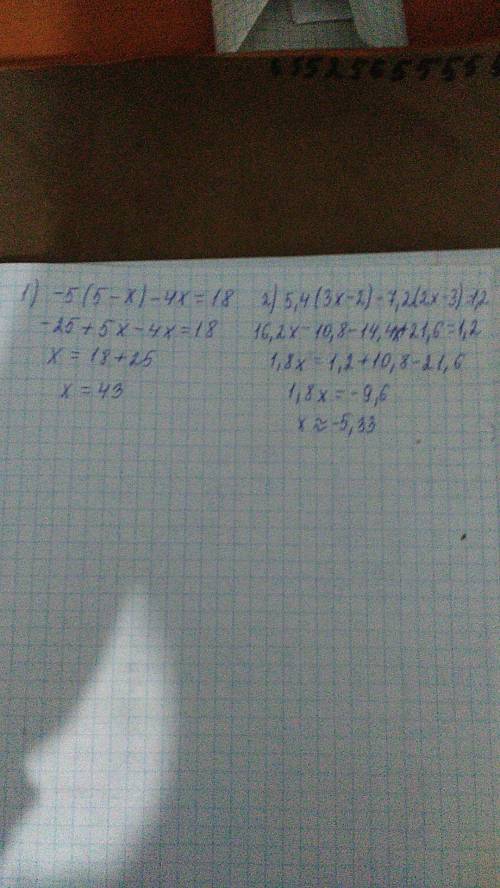 1) -5(5-x)-4x=18
-25+5x-4x=18
x = 18+25
x = 43
2) 5,4(3x-2)-7,2(2x-3)=1,2
16,2x-10,8-14,4x+21,6=1,2
1,8x = 1,2+10,8-21,6
1,8x = -9,6
x ≈ -5,33